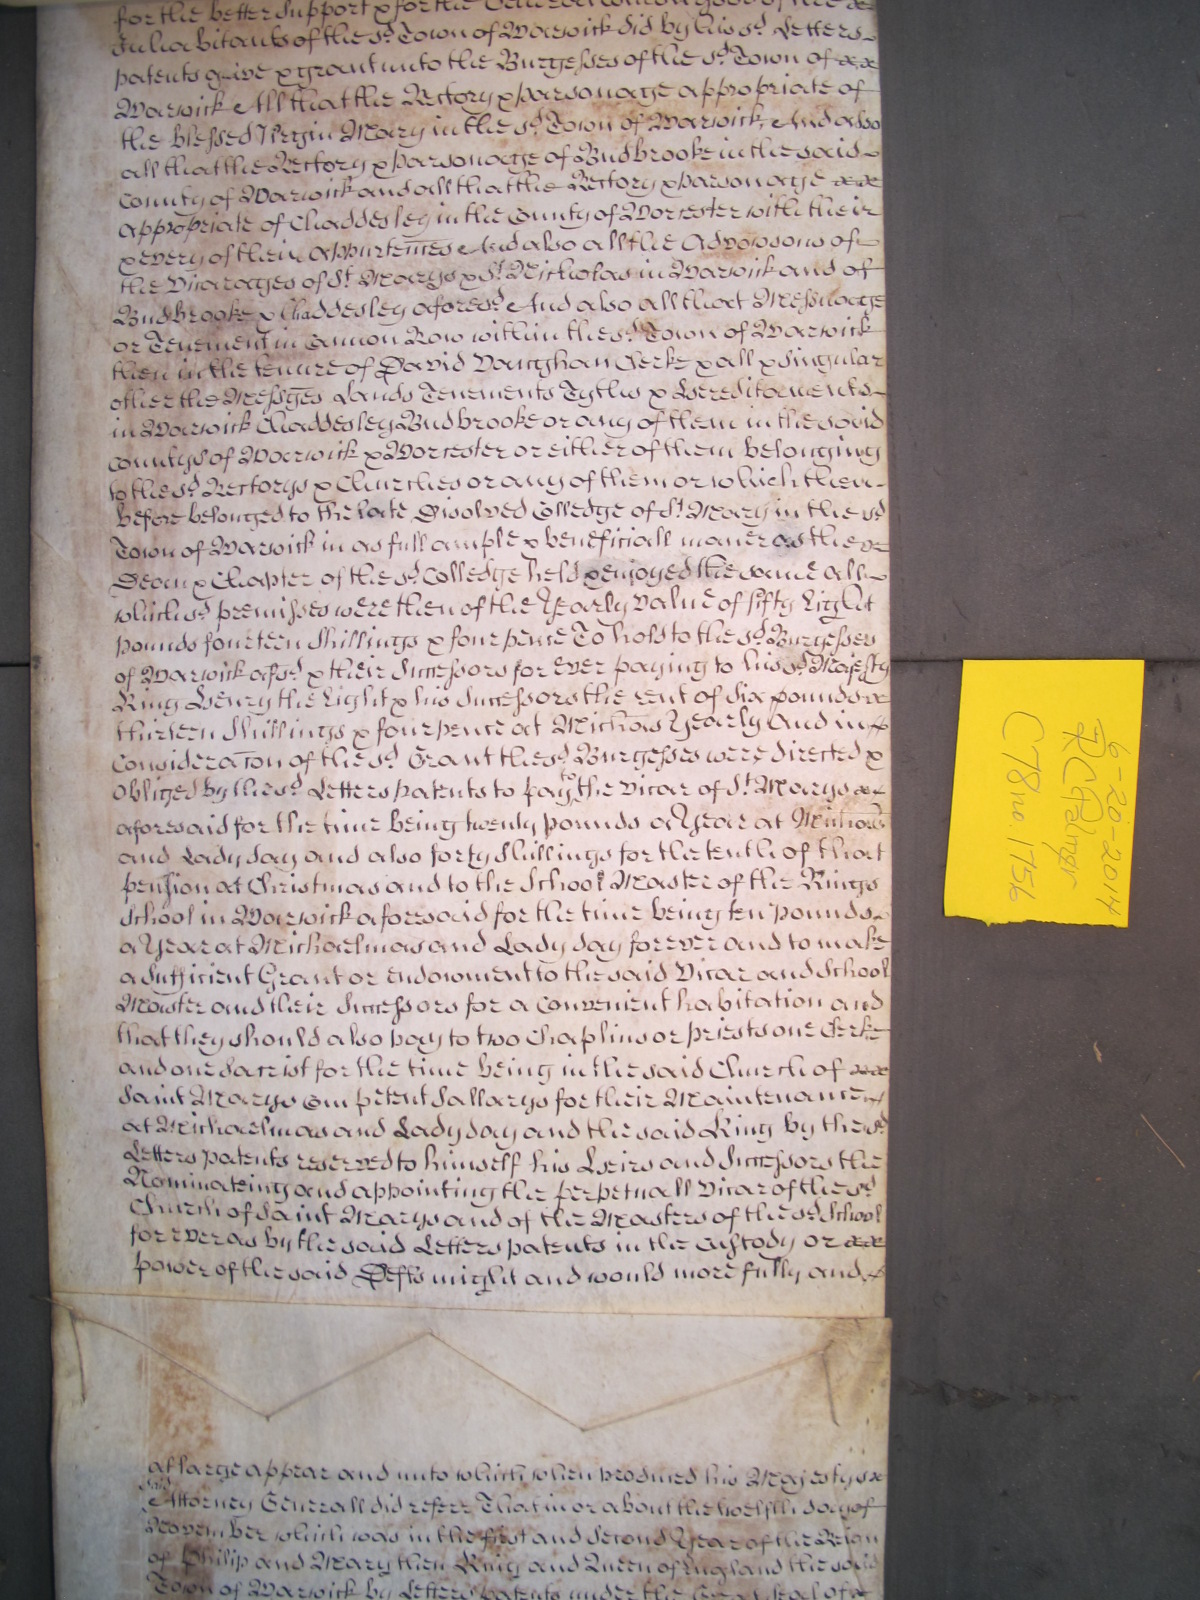 for the better support & for the
Inhabitants of the sd. Town of Warwick did by his sd. Letters
patents give & grant unto the Burgesses of the sd. Town of
Warwick All that the Rectory & Parsonage appropriate of
the blessed Virgin Mary in the sd. Town of Warwick, And also
all that the Rectory & Parsonage of Budbrooke in the said
County of Warwick and all that the Rectory & Parsonage
appropriate of Chaddesley in the County of Worcester with their
& every of their Appurtences And also all the Advowsons of
the Vicarages of St. Marys & St. Nicholas in Warwick and of
Budbrooke & Chaddesley aforesd. And also all that Messuage
or Tenement in Cannon Row within the sd. Town of Warwick
then in the tenure of David Vaughan Clerke & all & singular
other the Messges Lands Tenements Tythes & Hereditaments
in Warwick Chaddesley Budbrooke or any of them in the said
Countys of Warwick & Worcester or either of them belonging
to the sd. Rectorys & Churches or any of them or which then
before belonged to the late Disolved Colledge of St. Mary in the sd
Town of Warwick in as full ample & beneficiall maner as the
Dean & Chapter of the sd. Colledge held & enjoyed the same all
which sd. premisses were then of the Yearly value of fifty Eight
pounds fourteen shillings & four pence To hold to the sd. Burgesses
of Warwick afsd. & their Successors for Ever paying to his sd. Majesty
King Henry the Eight & his Successors the rent of six pounds
thirteen shillings & four pence at Michas Yearly and in
Consideracon of the sd. Grant the sd. Burgesses were directed &
obliged by the sd. Letters patents to pay to the Vicar of St. Marys
aforesaid for the time being twenty pounds a Year at Michas
and Lady day and also forty shillings for the tenth of that
pension at Christmas and to the School Master of the Kings
School in Warwick aforesaid for the time being ten pounds
a Year at Michaelmas and Lady day forever and to make
a sufficient Grant or endowment to the said Vicar and School
Master and their Successors for a convenient habitation and
that they should also pay to two Chaplins or priests one Clerke
and one Sacrist for the time being in the said Church of
Saint Marys Competent Sallarys for their Maintenance
at Michaelmas and Lady day and the said King by the sd
Letters patents reserved to himself his Heirs and Successors the
Nominateing and appointing the perpetuall Vicar of the sd
Church of Saint Marys and of the Masters of the sd. School
for ever as by the said Letters patents in the Custody or
power of the said Defts might and would more fully and
at large appear and unto which when produced his Majestys
said
Attorney Generall did referr That in or about the twelfth day of
November which was in the first and second Year of the Reign
of Philip and Mary then King and Queen of England the said
Town of Warwick by Letters patents under the Great Seal of
6-20-2014
RC Palmer
C78 no. 1756